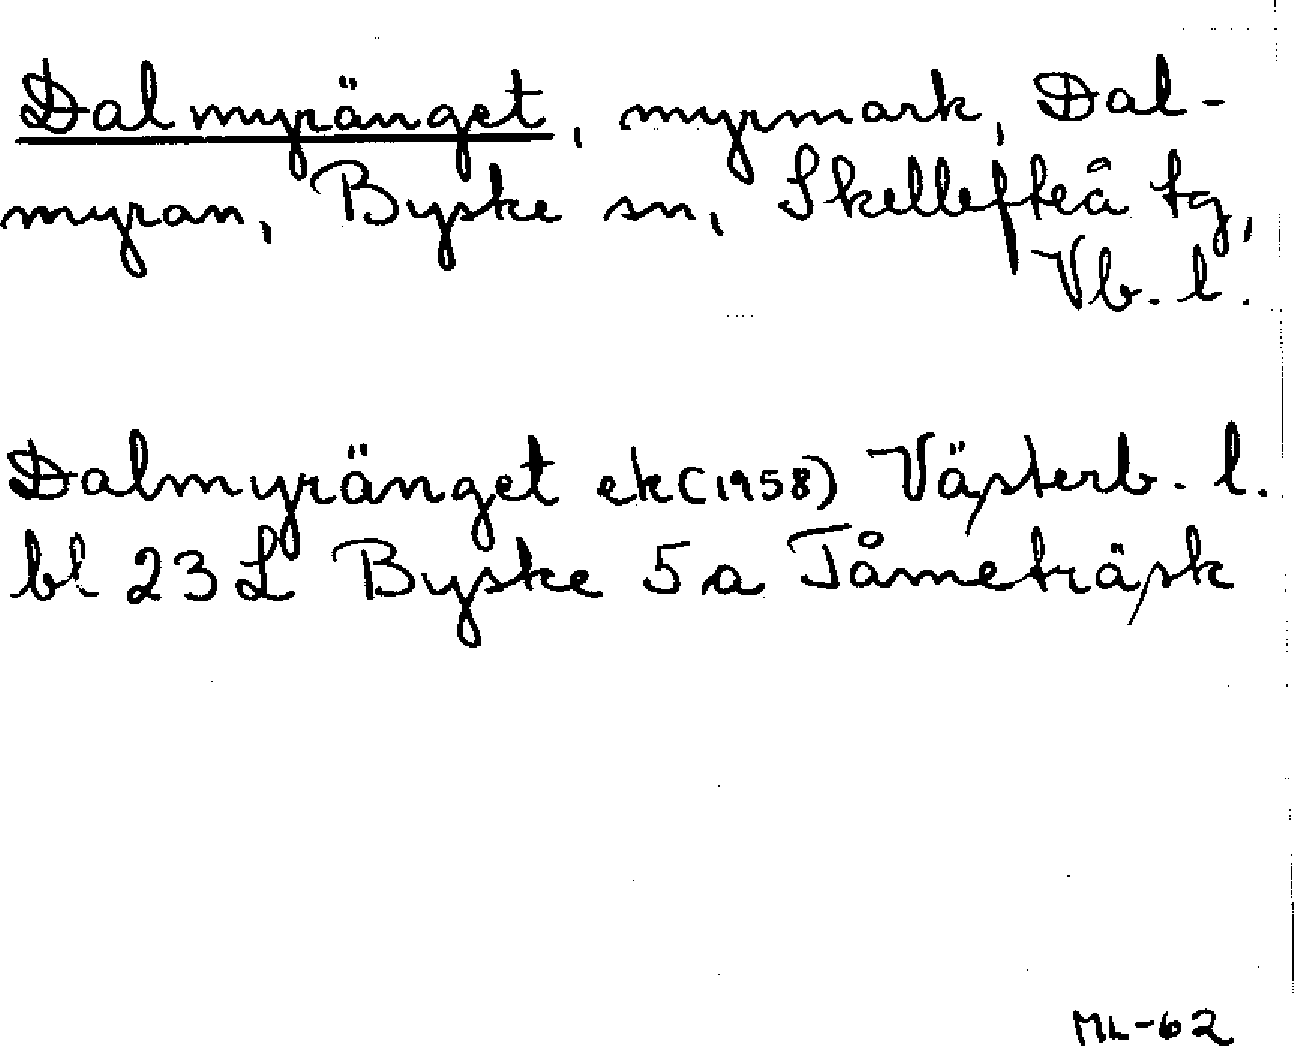 Dalmyränget, myrmark, Dal-
myran, Byske sn, Skellefteå tg,
Vb. l.
Dalmyränget ek (1958) Västerb. l.
bl 23 L Byske 5 a Tåmeträsk
ML-62